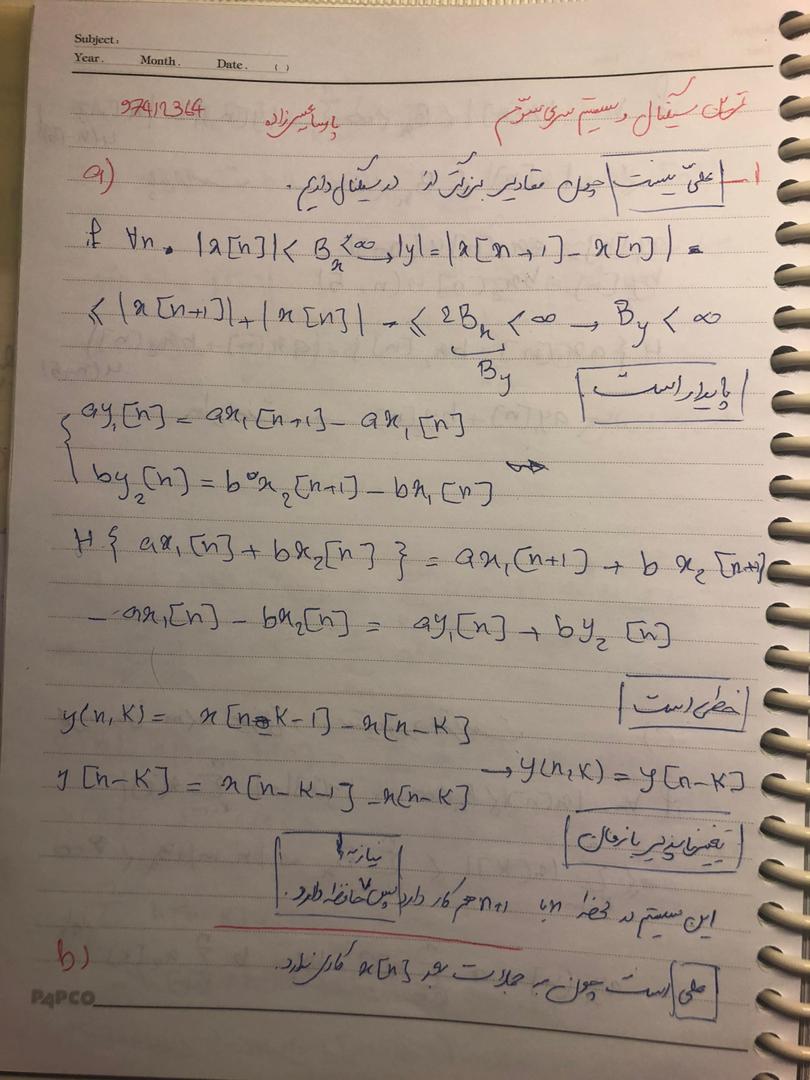 Subject:
Year. Month. Date. ( )
تمرین سیگنال و سیستم سری سوم پارسا عیسی‌زاده 97412364
1- علّی نیست چون مقادیر بزرگتر از در سیگنال داریم. a)
if ∀n. |x[n]| < B_x < ∞ → |y| = |x[n+1] - x[n]| =
≤ |x[n+1]| + |x[n]| = ≤ 2B_x < ∞ → B_y < ∞
B_y
پایدار است
{ ay₁[n] = ax₁[n+1] - ax₁[n]
by₂[n] = b x₂[n+1] - bx₁[n]
H{ ax₁[n] + bx₂[n] } = ax₁[n+1] + b x₂[n+1]
- ax₁[n] - bx₂[n] = ay₁[n] + by₂[n]
خطی است
y(n,K) = x[n-K-1] - x[n-K]
y[n-K] = x[n-K-1] - x[n-K] → y(n,K) = y[n-K]
تغییرناپذیر با زمان
این سیستم در لحظه n با n+1 هم کار دارد پس حافظه دارد.
نیاز به
b)
علی است چون به جملات بعد x[n] کاری ندارد.
PAPCO